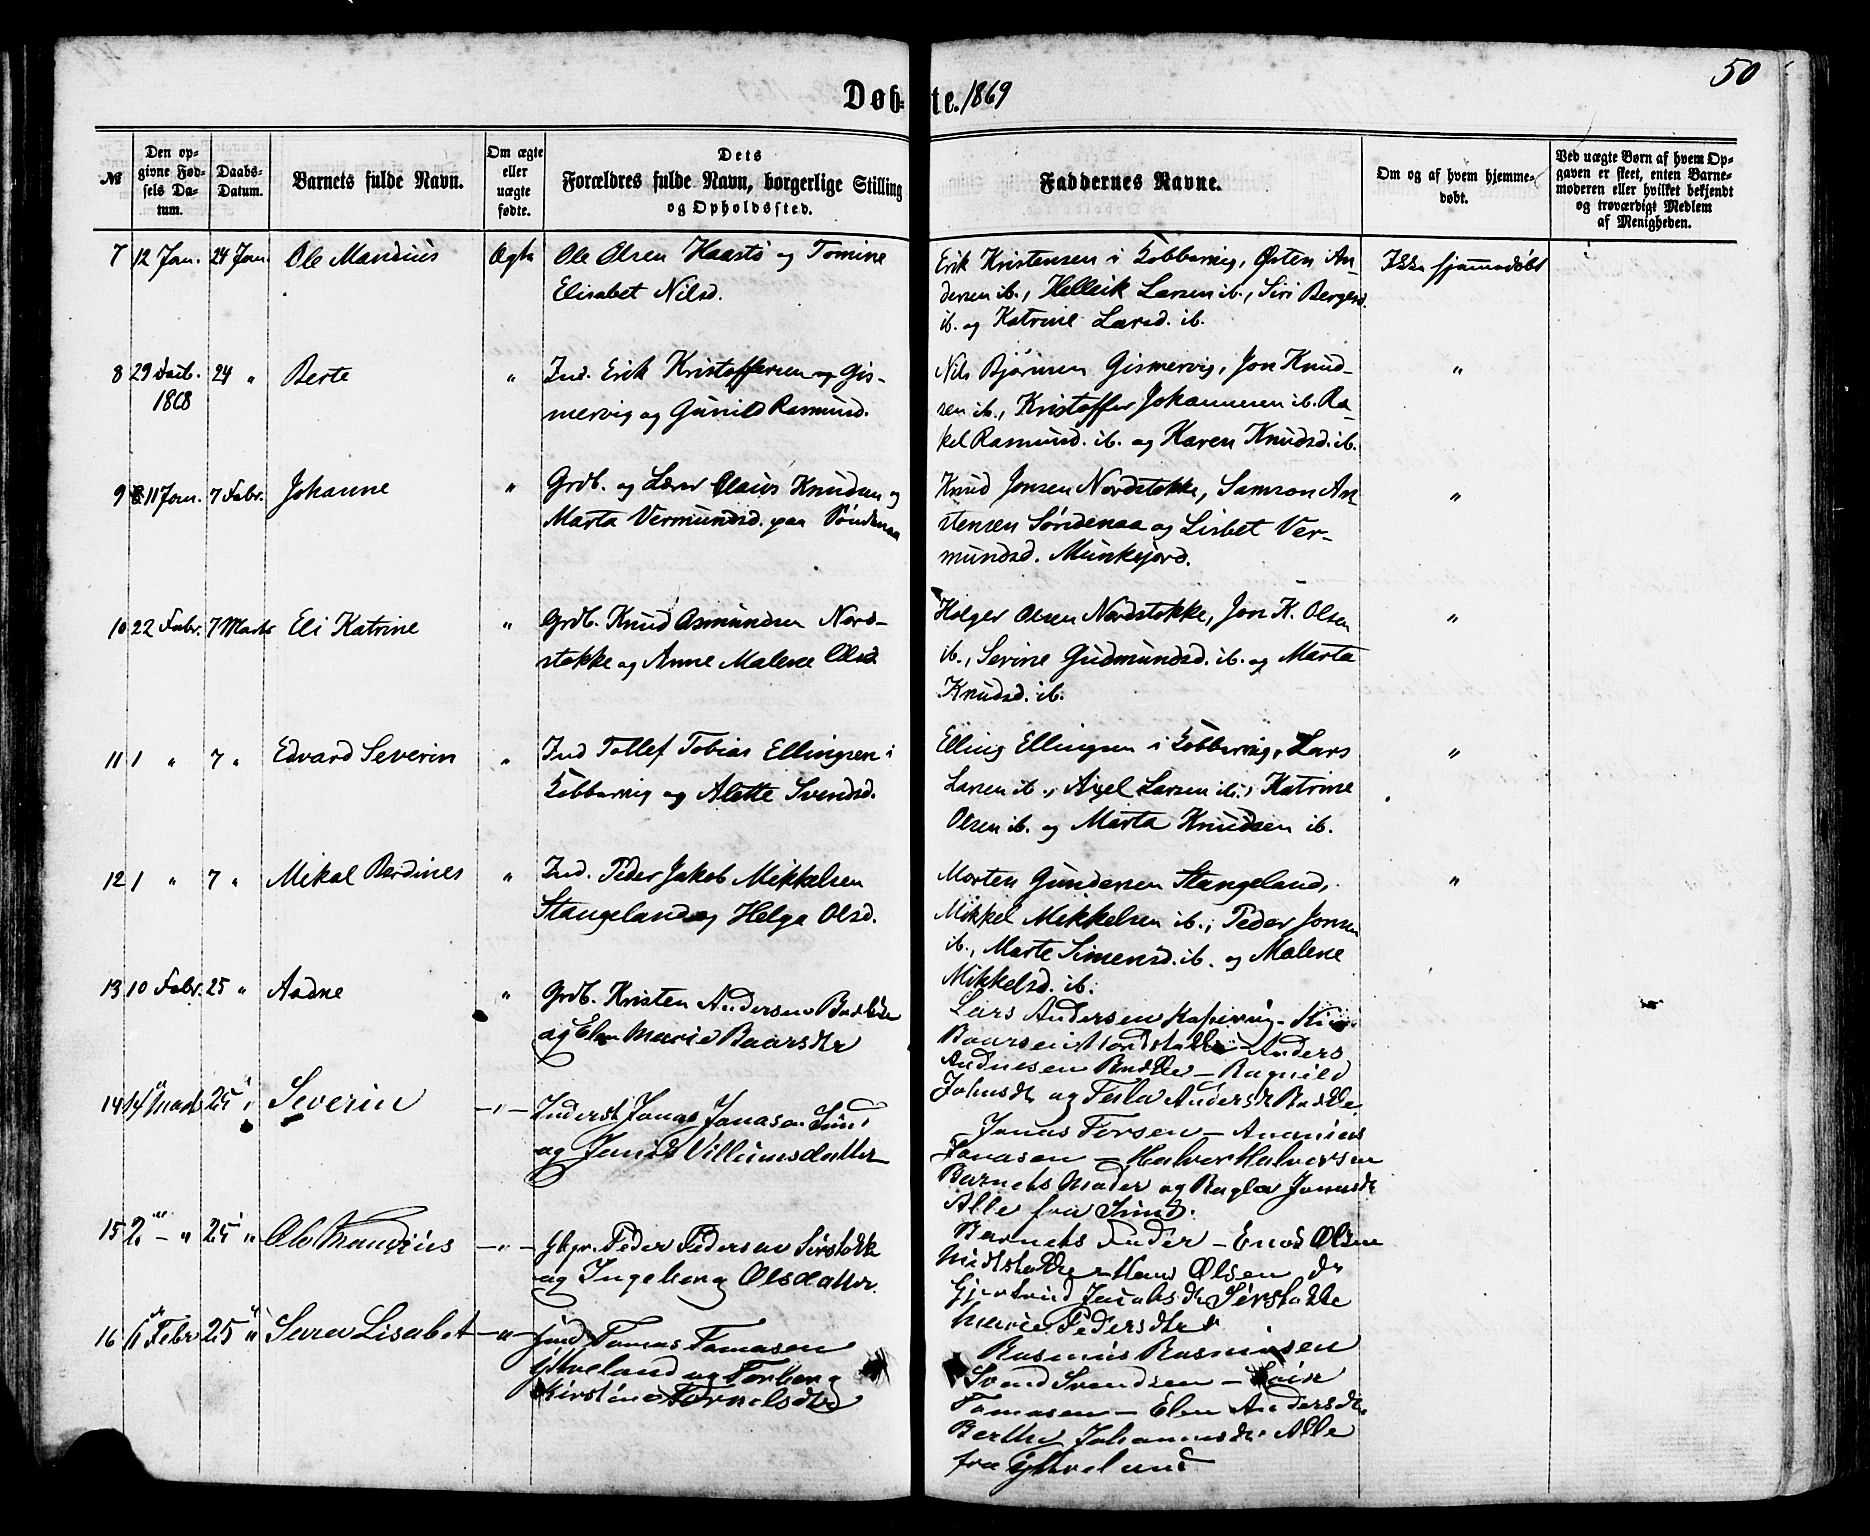 50
Døb-te. 1869
№
Den opgivne Fødsels Datum.
Daabs-Datum.
Barnets fulde Navn.
Om ægte eller uægte fødte.
Dets Forældres fulde Navn, borgerlige Stilling og Opholdssted.
Faddernes Navne.
Om og af hvem hjemmedøbt.
Ved uægte Børn af hvem Opgaven er skeet, enten Barnemoderen eller hvilket bekjendt og troværdigt Medlem af Menigheden.
7 12 Jan. 24 Jan. Ole Mandius Ægte Ole Olsen Haastø og Tomine
Elisabet Nilsd.
Erik Kristensen i Kobbervig, Østen An-
dersen ib., Hellik Larsen ib., Siri Bergesd.
ib. og Katrine Larsd. ib.
Ikke hjemmedøbt
8 29 Decb. 1868 24 " Berte " Ind. Erik Kristoffersen og Gis-
mervig og Gunild Rasmusd.
Nils Bjørnsen Gismervig, Jon Knud-
sen ib., Kristoffer Johannesen ib. Ra-
kel Rasmusd. ib. og Karen Knudsd. ib.
"
9 11 Jan. 7 Febr. Johanne " Grdb. og Lærer Claus Knudsen og
Marta Vermundsd. paa Søndenaa
Knud Jonsen Nordstokke, Samson An-
stensen Søndenaa og Lisbet Ver-
mundsd. Munkejord.
"
10 22 Febr. 7 Marts Eli Katrine " Grdb. Knud Asmundsen Nord-
stokke og Anne Malene Olsd
Holger Olsen Nordstokke, Jon K. Olsen
ib., Serine Gudmundsd. ib. og Marta
Knudsd. ib.
"
11 1 " 7 " Edvard Severin " Ind Tollef Tobias Ellingsen i
Kobbervig og Alette Svendsd.
Elling Ellingsen i Kobbervig, Lars
Larsen ib., Axel Larsen ib., Katrine
Olsen ib. og Marta Knudsen ib.
"
12 1 " 7 " Mikal Berdines " Ind. Peder Jakob Mikkelsen
Stangeland og Helga Olsd.
Morten Gundersen Stangeland,
Mikkel Mikkelsen ib., Peder Jonsen
ib., Marte Simensd. ib. og Malene
Mikkelsd. ib.
"
13 10 Febr. 25 " Aadne " Grdb. Kristen Andersen
og Elen Marie Baarsdtr
Lars Andersen
Baarsen Nordstokke - Anders
Andnesen - Ragnild
Johnsdtr og Andersdtr
14 14 Marts 25 " Severin -"- Inderst Jonas Jonasen Sund
og Villumsdatter
Jonas Torsen - Ananias
Jonasen - Halvor Halvorsen
Barnets Moder og Jonasdtr
Alle fra Sund.
15 2 - " 25 " Ole Mandius -"- Peder Pedersen Sørstokke
og Ingeborg Olsdatter.
Barnets Fader - Enos Olsen
Midtstokke - Hans Olsen do
Gjertrud Jacobsdtr Sørstokke
Marie Pedersdtr
16 11 Febr 25 " Sara Lisabet -"- Ind Tomas Tomasen
og Torborg
Kirstine
Rasmus Rasmussen
Svend Svendsen -
Tomasen - Elen Andersdtr
Berthe Johannesdtr Alle
fra